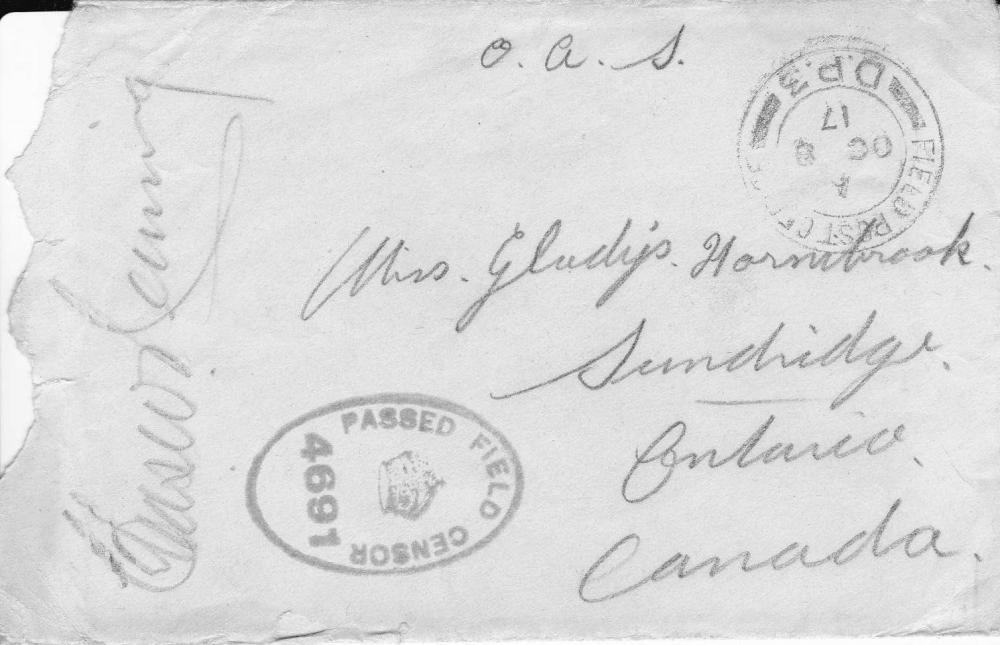 O. A. S.
FIELD POST OFFICE
D.P. 3
4
OC 8
17
Miss. Gladys. Hornibrook.
Sundridge.
Ontario.
Canada.
PASSED FIELD CENSOR
4691
Canning